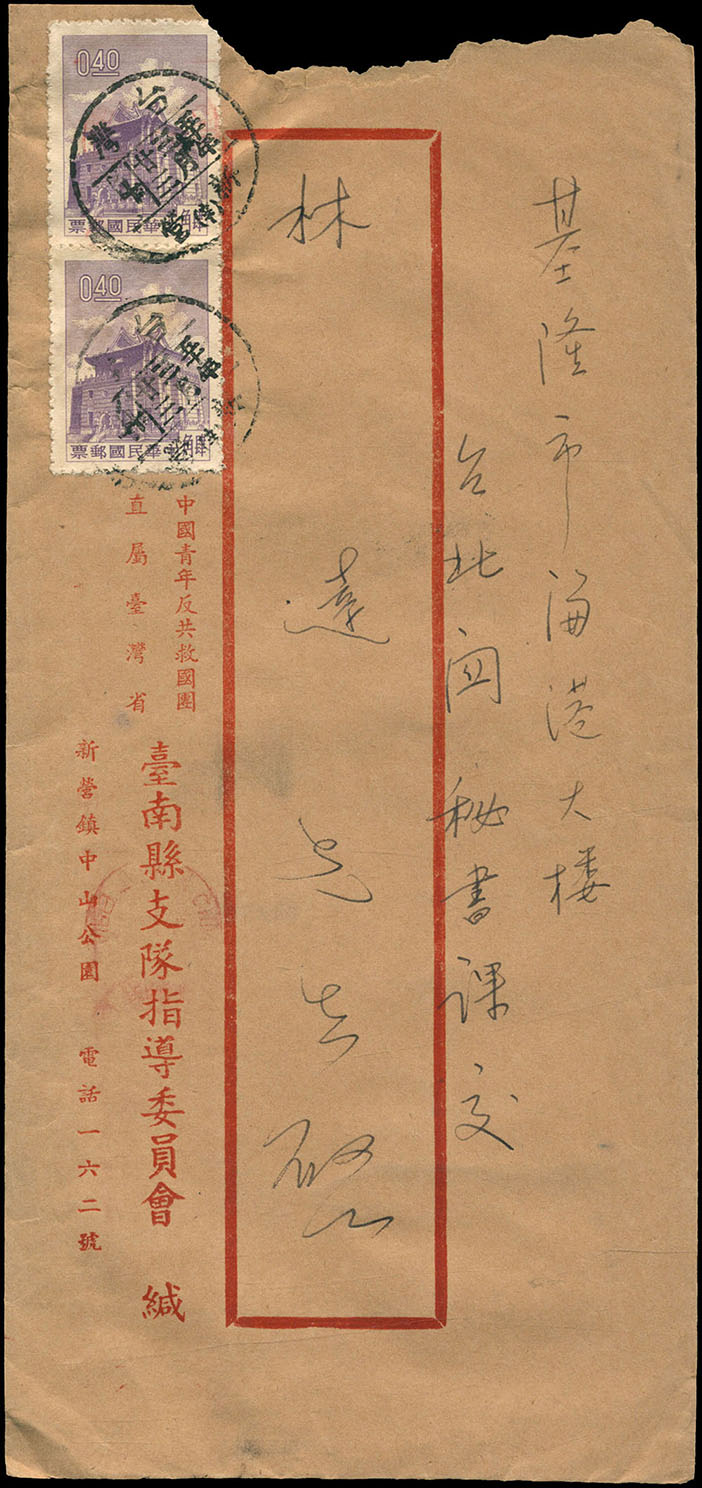 基隆市海港大楼
台北関秘書課交
林達先生啟
0.40
中華民國郵票
0.40
中華民國郵票
台灣
新營
中國青年反共救國團
直屬臺灣省
臺南縣支隊指導委員會 緘
新營鎮中山公園 電話一六二號